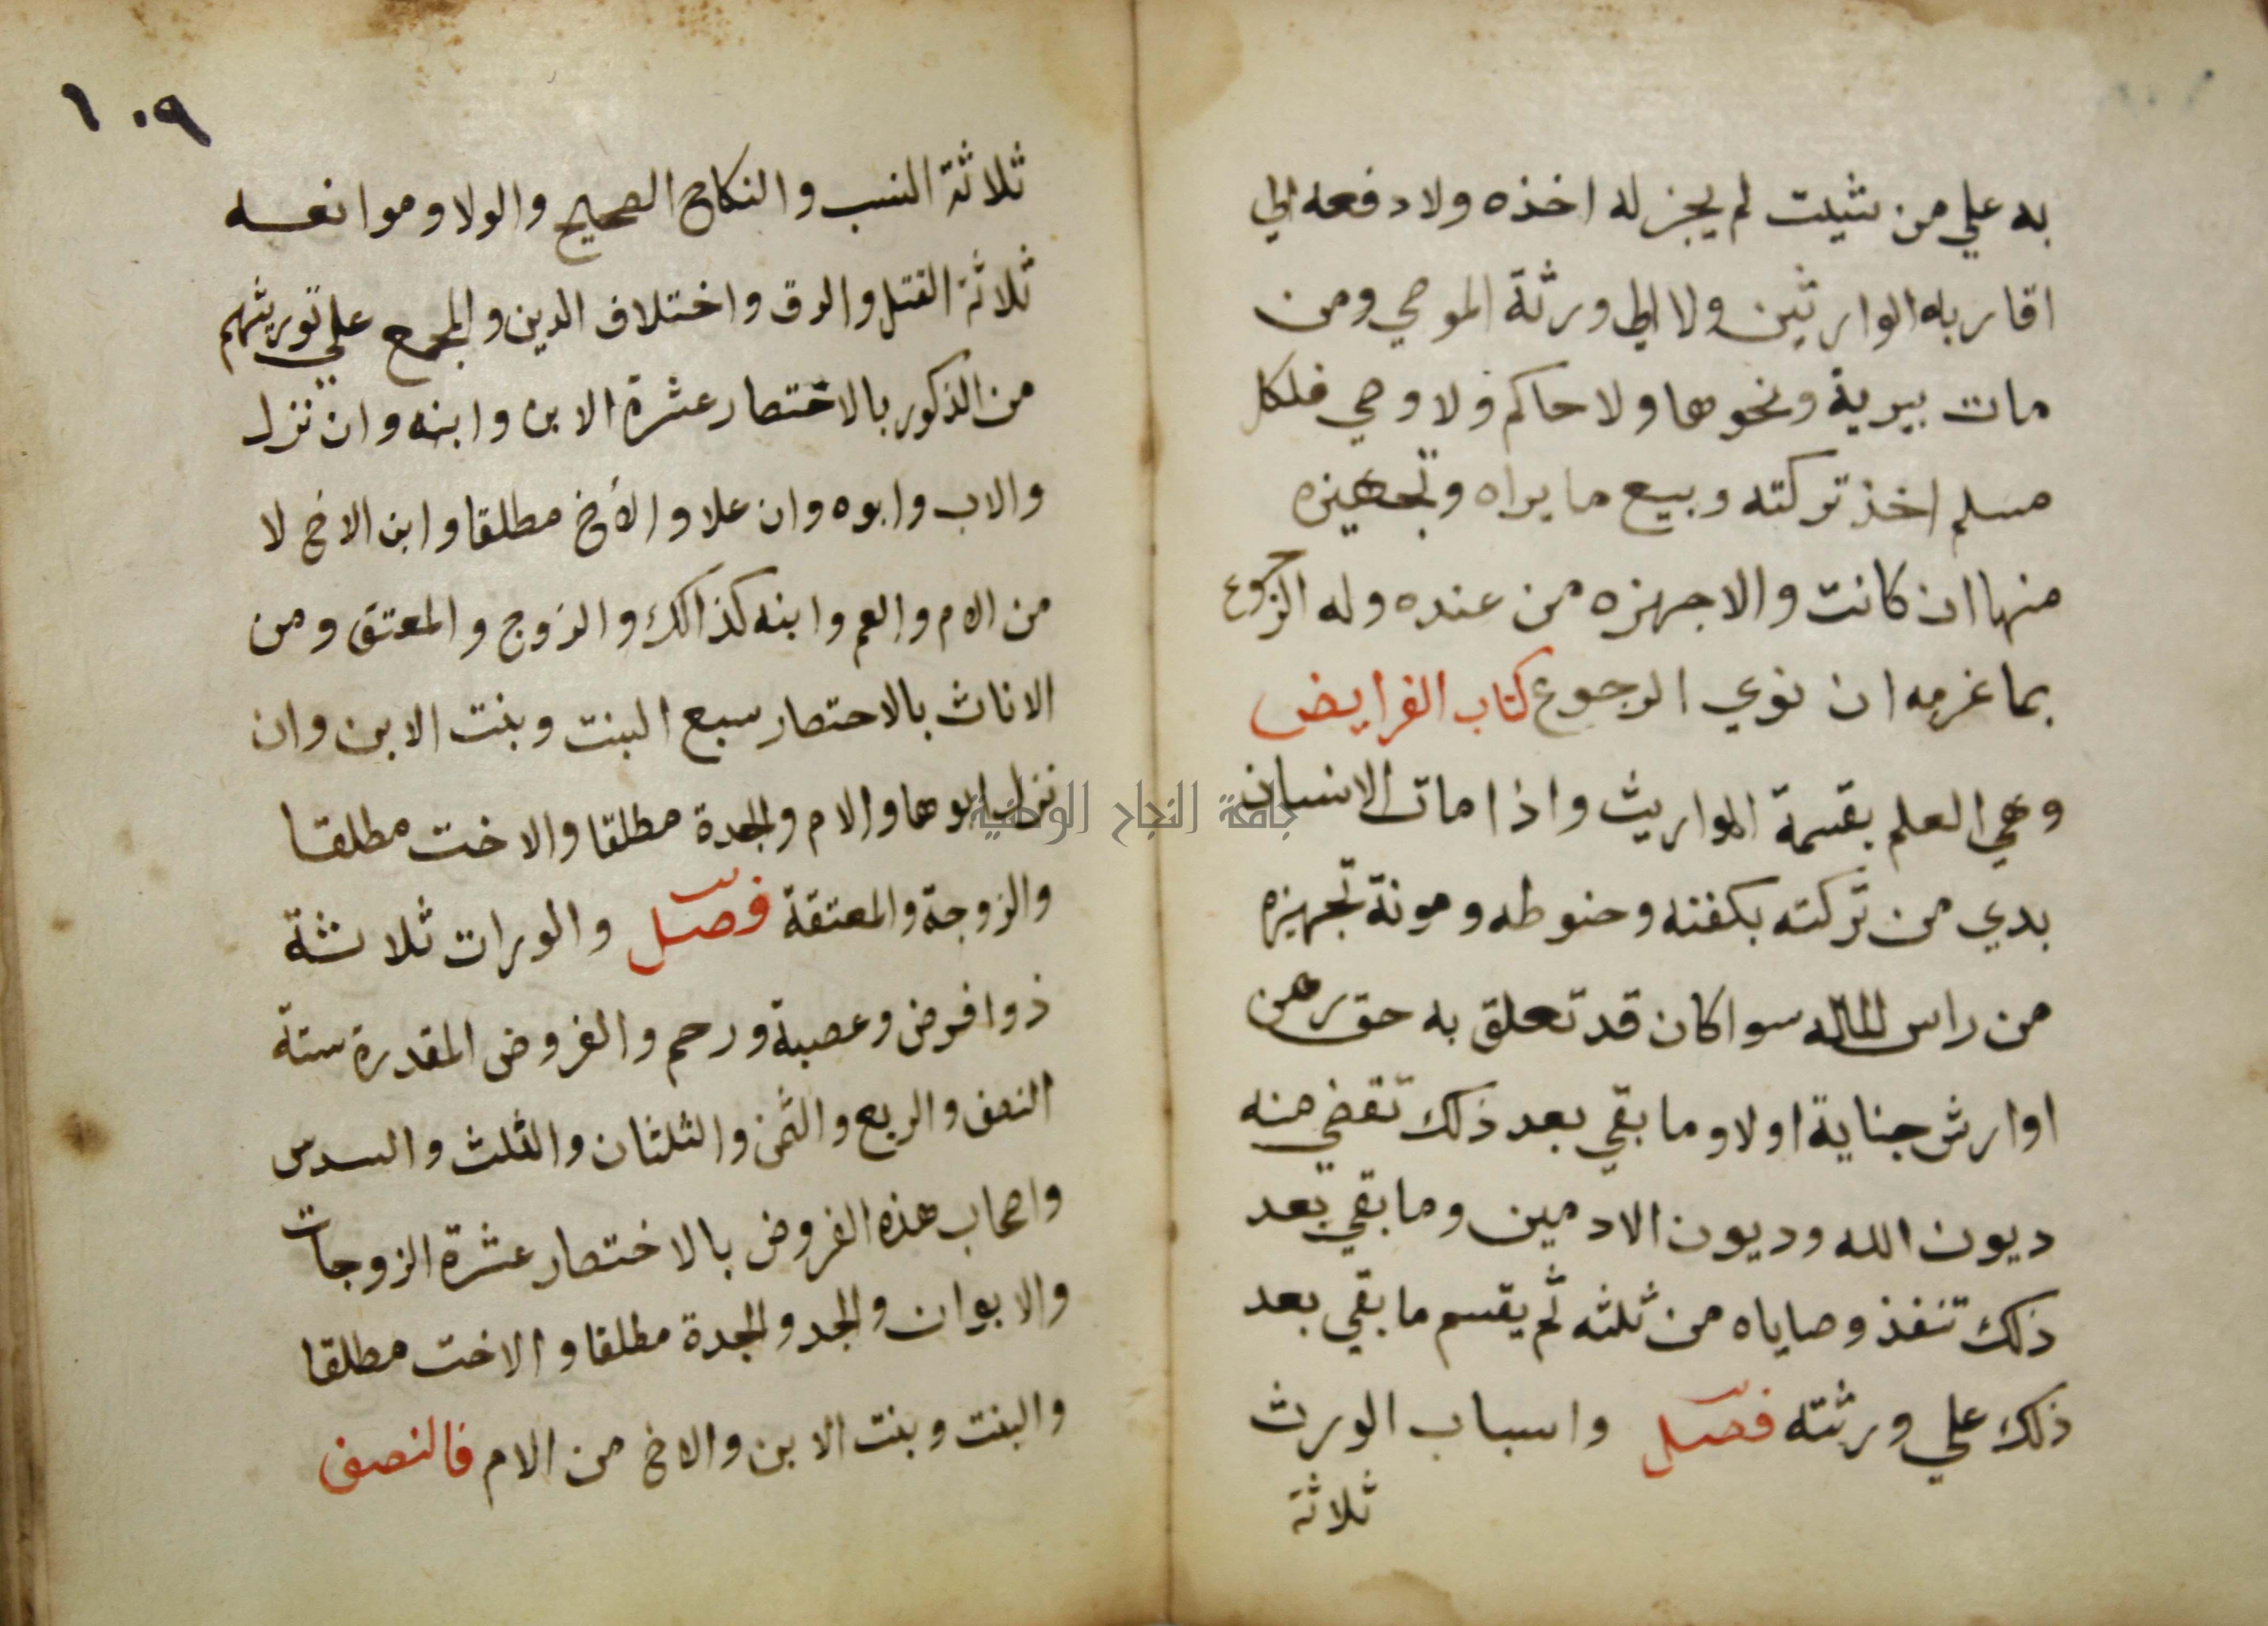 به علي من شيت لم يجز له اخذه ولا دفعه الي
اقاربه الوارثين ولا الي ورثة الموصي ومن
مات ببرية ونحوها ولا حاكم ولا وصي فلكل
مسلم اخذ تركته وبيع ما يراه وتجهيزه
منها ان كانت والا جهزه من عنده وله الرجوع
بما غرمه ان نوي الرجوع كتاب الفرايض
وهي العلم بقسمة المواريث واذا مات الانسان
بدي من تركته بكفنه وحنوطه ومونة تجهيزه
من راس ماله سوا كان قد تعلق به حق رهن
او ارش جناية اولا وما بقي بعد ذلك تقضي منه
ديون الله وديون الادمين وما بقي بعد
ذلك تنفذ وصاياه من ثلثه ثم يقسم ما بقي بعد
ذلك علي ورثته فصل واسباب الورث
ثلاثة
١٠٩
ثلاثة النسب والنكاح الصحيح والولا وموانعه
ثلاثة القتل والرق واختلاف الدين والمجمع علي توريثهم
من الذكور بالاختصار عشرة الابن وابنه وان نزل
والاب وابوه وان علا والأخ مطلقا وابن الاخ لا
من الام والعم وابنه كذالك والزوج والمعتق ومن
الاناث بالاحتصار سبع البنت وبنت الابن وان
نزل ابوها والام والجدة مطلقا والاخت مطلقا
والزوجة والمعتقة فصل والورات ثلاثة
ذوا فرض وعصبة ورحم والفروض المقدرة ستة
النصف والربع والثمن والثلثان والثلث والسدس
واصحاب هذه الفروض بالاختصار عشرة الزوجات
والابوان والجد والجدة مطلقا والاخت مطلقا
والبنت وبنت الابن والاخ من الام فالنصف
جامعة النجاح الوطنية